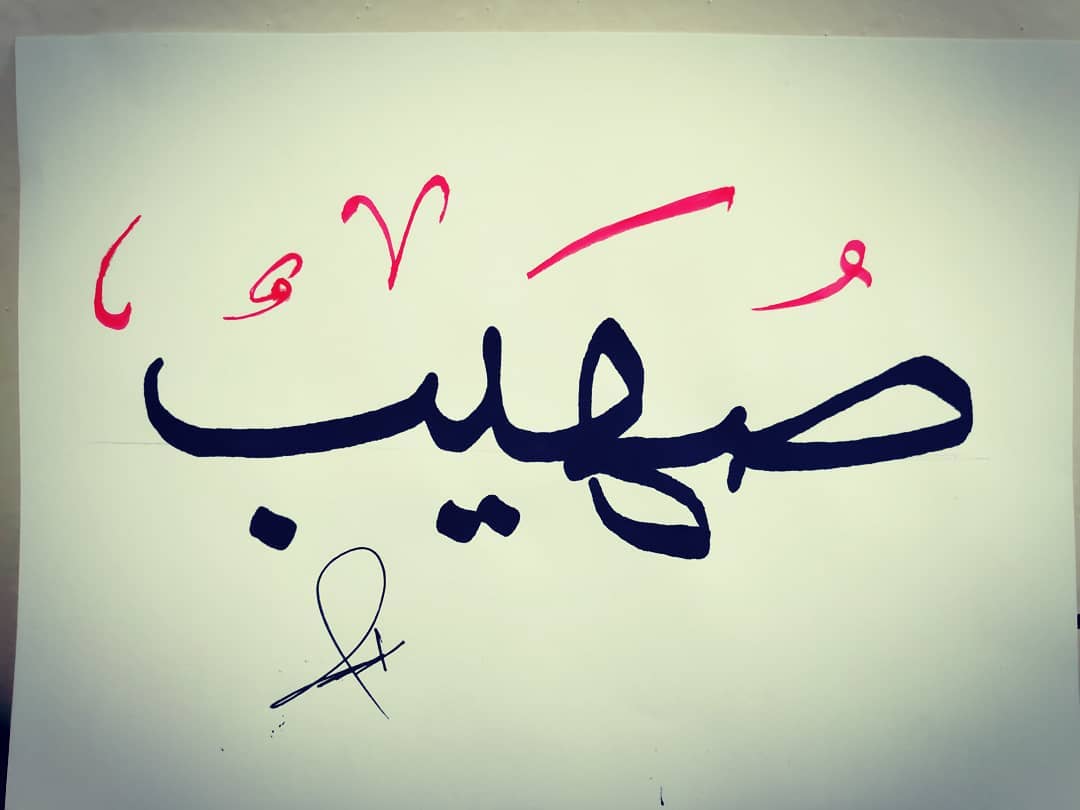 صُهَيبٌ